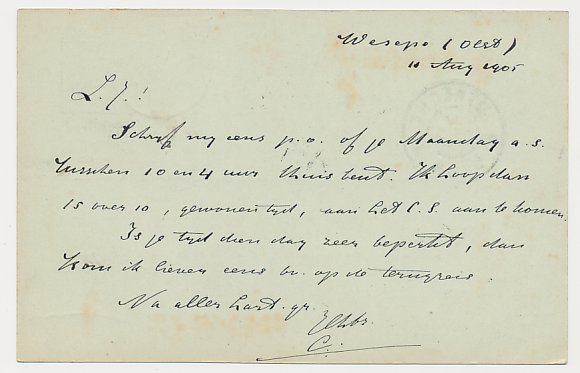 Wesepe (Olst)
11 Aug 1905
L. J.!
Schryf my eens p.o. of je Maandag a.s.
tusschen 10 en 4 uur thuis bent. Ik hoop dan
15 over 10, gewonen tyd, aan het C.S. aan te komen.
Is je tyd dien dag zeer beperkt, dan
kom ik liever eens br. op de terugreis.
Na aller hart. gr.
C.